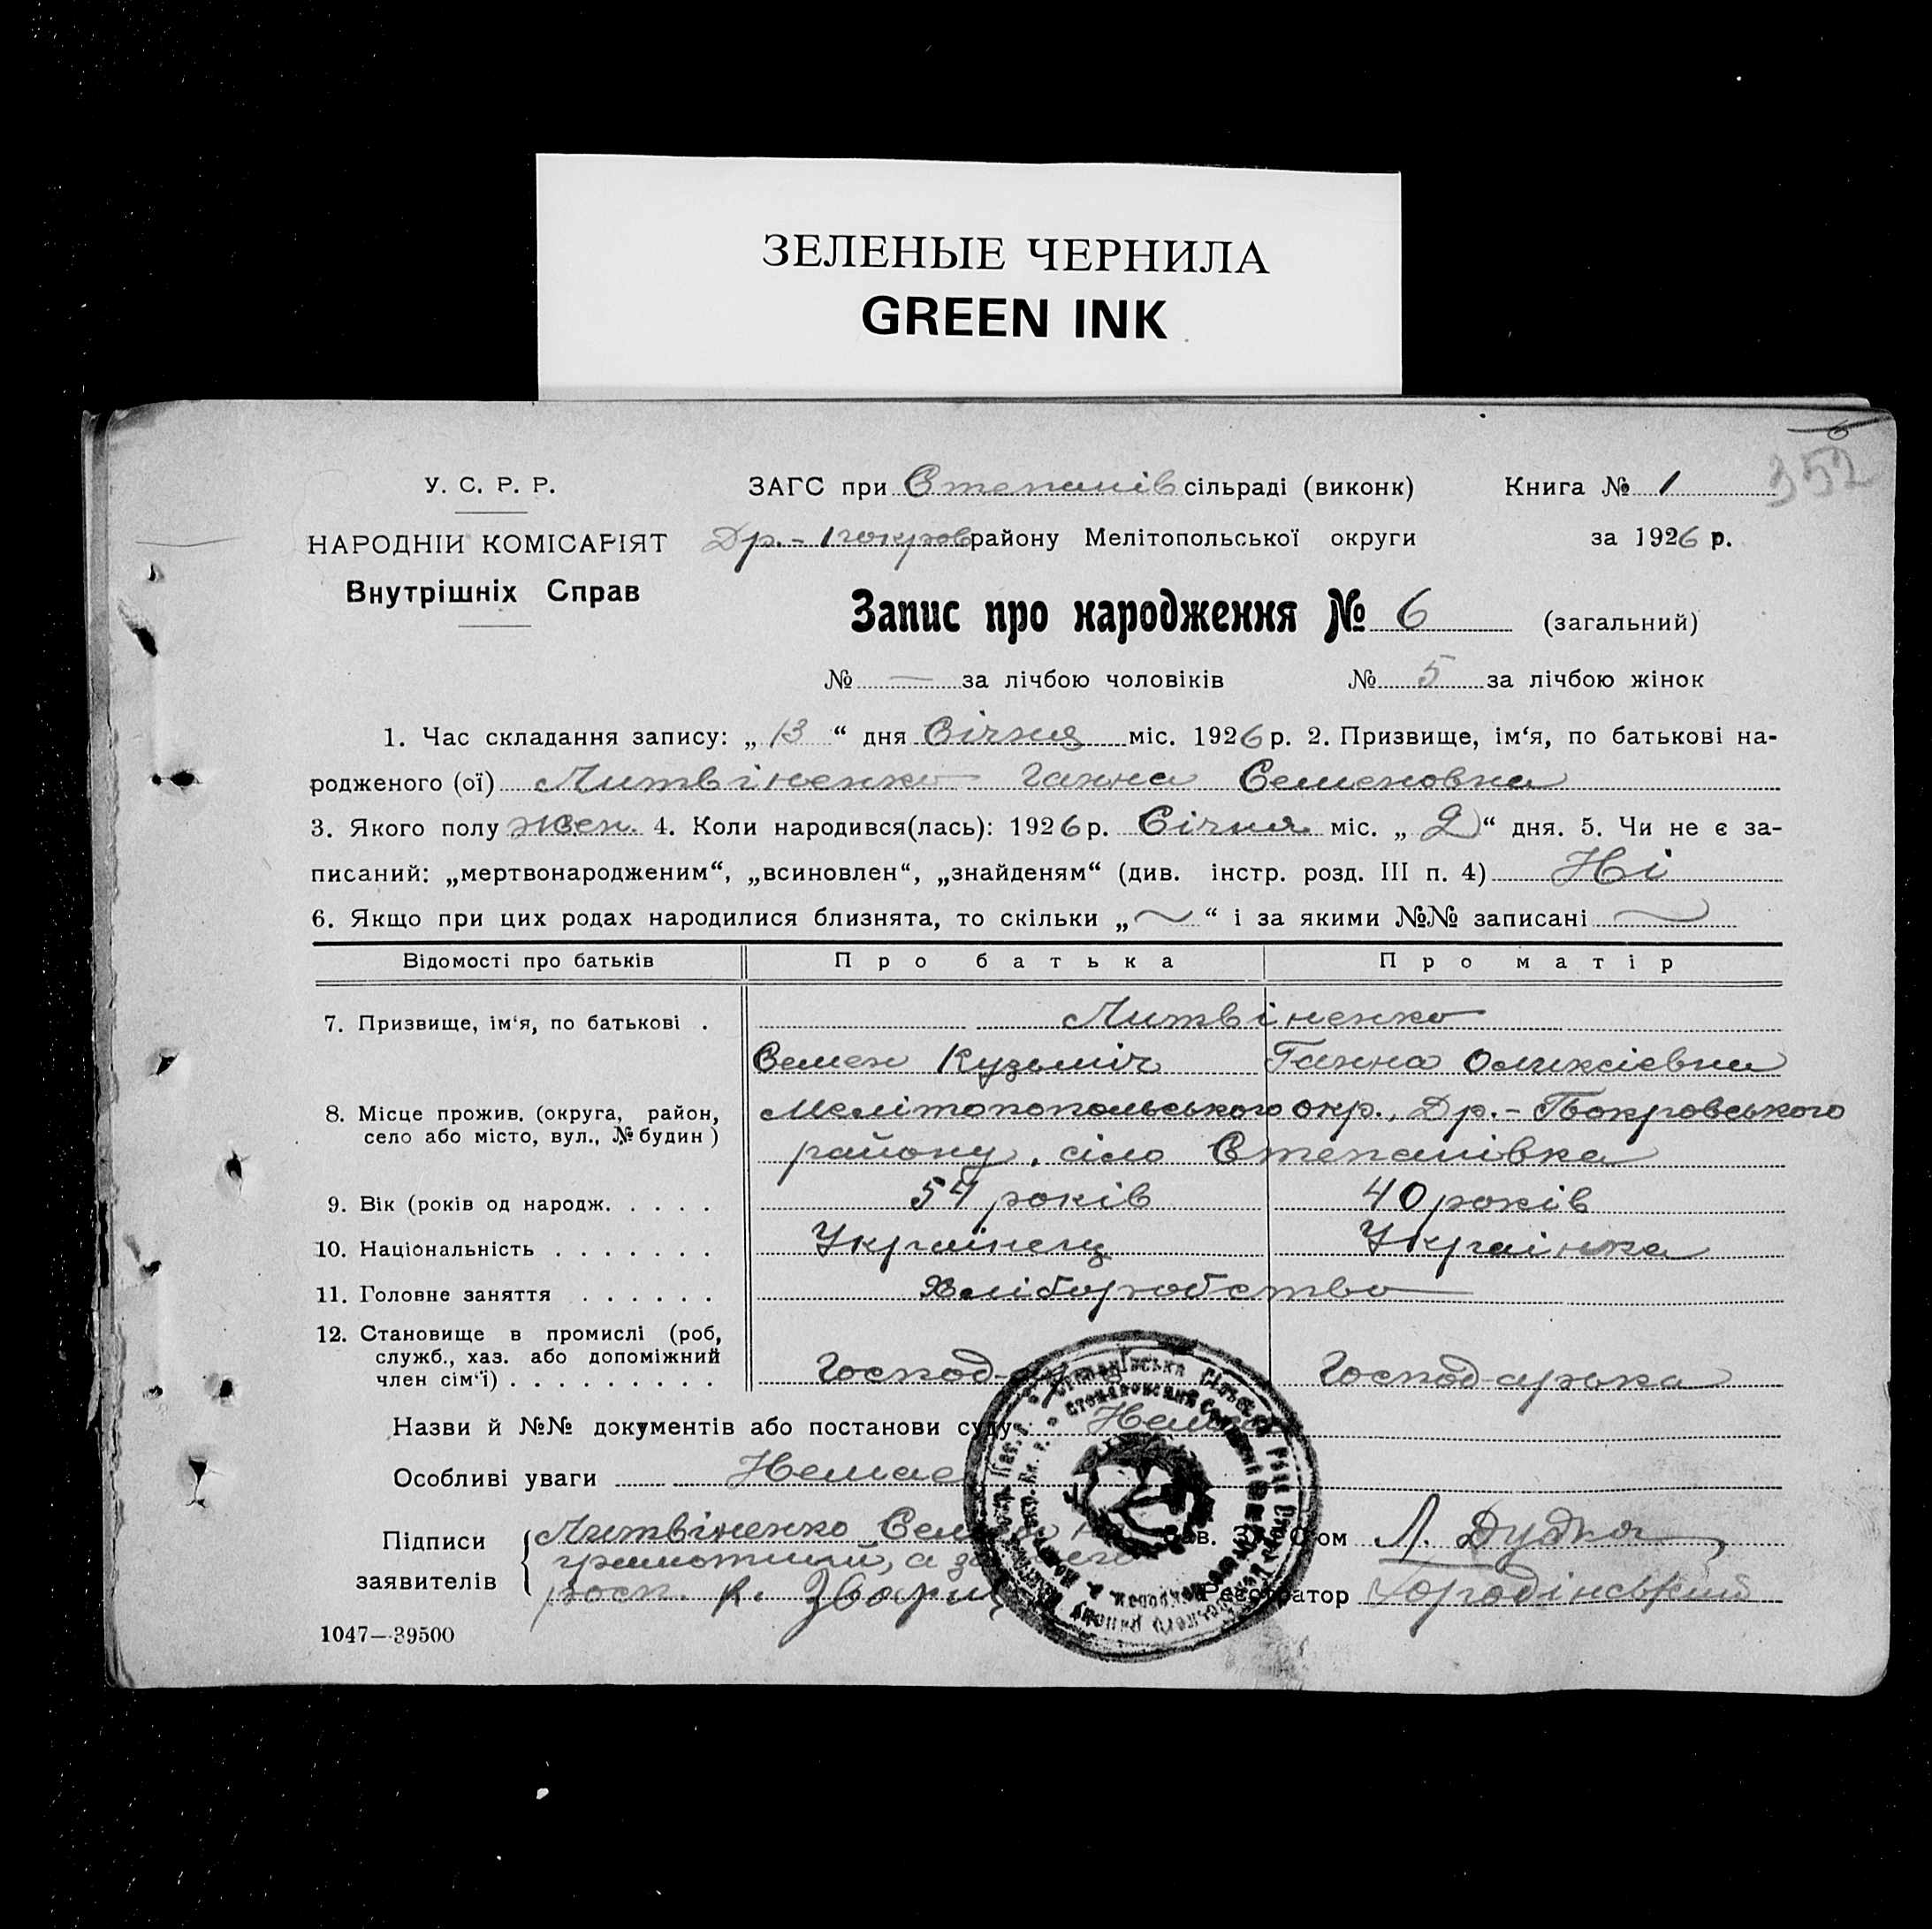 ЗЕЛЕНЫЕ ЧЕРНИЛА
GREEN INK
352
У. С. Р. Р.
НАРОДНІЙ КОМІСАРІЯТ
Внутрішніх Справ
ЗАГС при Степанів сільраді (виконк) Книга № 1
Др.-Покров району Мелітопольської округи за 1926 р.
Запис про народження № 6 (загальний)
№ — за лічбою чоловіків № 5 за лічбою жінок
1. Час складання запису: „ 13 “ дня Січня міс. 1926 р. 2. Призвище, ім‘я, по батькові на-
родженого (ої) Литвіненко Ганна Семеновна
3. Якого полу жен. 4. Коли народився(лась): 1926 р. Січня міс. „ 2 “ дня. 5. Чи не є за-
писаний: „мертвонародженим“, „всиновлен“, „знайденям“ (див. інстр. розд. III п. 4) Ні
6. Якщо при цих родах народилися близнята, то скільки „ ~ “ і за якими №№ записані ~
Відомості про батьків Про батька Про матір
7. Призвище, ім‘я, по батькові . Литвіненко
Семен Кузьміч Ганна Оликсієвна
8. Місце прожив. (округа, район, Мелітопопольського окр., Др.-Покровського
село або місто, вул., № будин ) району, сіло Степанівка
9. Вік (років од народж. . . . . 54 років 40 років
10. Національність . . . . . . . Українець Українка
11. Головне заняття . . . . . . Хліборобство
12. Становище в промислі (роб,
служб., хаз. або допоміжний
член сім‘ї) . . . . . . . . . Господ-арь Господ-арька
Назви й №№ документів або постанови суду: Немає
Особливі уваги Немає
Підписи заявителів Литвіненко Семен не
грамотний, а за его
росп. К. Зварищ
Зав. ЗАГСом Л. Дудка
Реєстратор Городінський
1047—39500